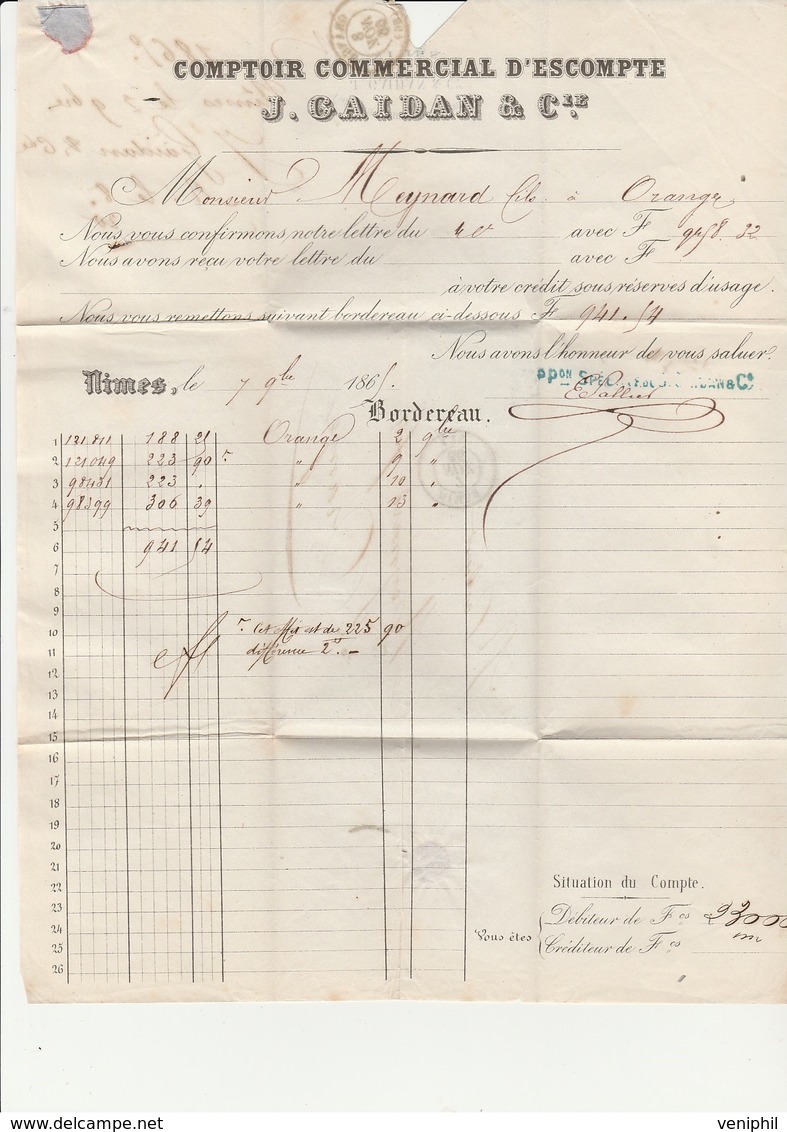 COMPTOIR COMMERCIAL D'ESCOMPTE
J. GAIDAN & CIE
Monsieur Meynard fils à Orange
Nous vous confirmons notre lettre du 4 Ct avec F 9458.32
Nous avons reçu votre lettre du avec F
à votre crédit sous réserves d'usage.
Nous vous remettons suivant bordereau ci-dessous F 941.54
Nous avons l'honneur de vous saluer.
Nimes, le 7 9bre 1865.
PPON & CE
Bordereau.
1 131.811 188 21 Orange 2 9bre
2 121049 223 90 r " 9 "
3 98431 223 . " 10 "
4 98399 306 39 " 13 "
5
6 941 54
7
8
9
10 r cet effet est de 225 90
11 différence 2 " -
12
13
14
15
16
17
18
19
20
21
22
23
24
25
26
Situation du Compte.
Vous êtes
Débiteur de Fcs 23000
Créditeur de Fcs
veniphil